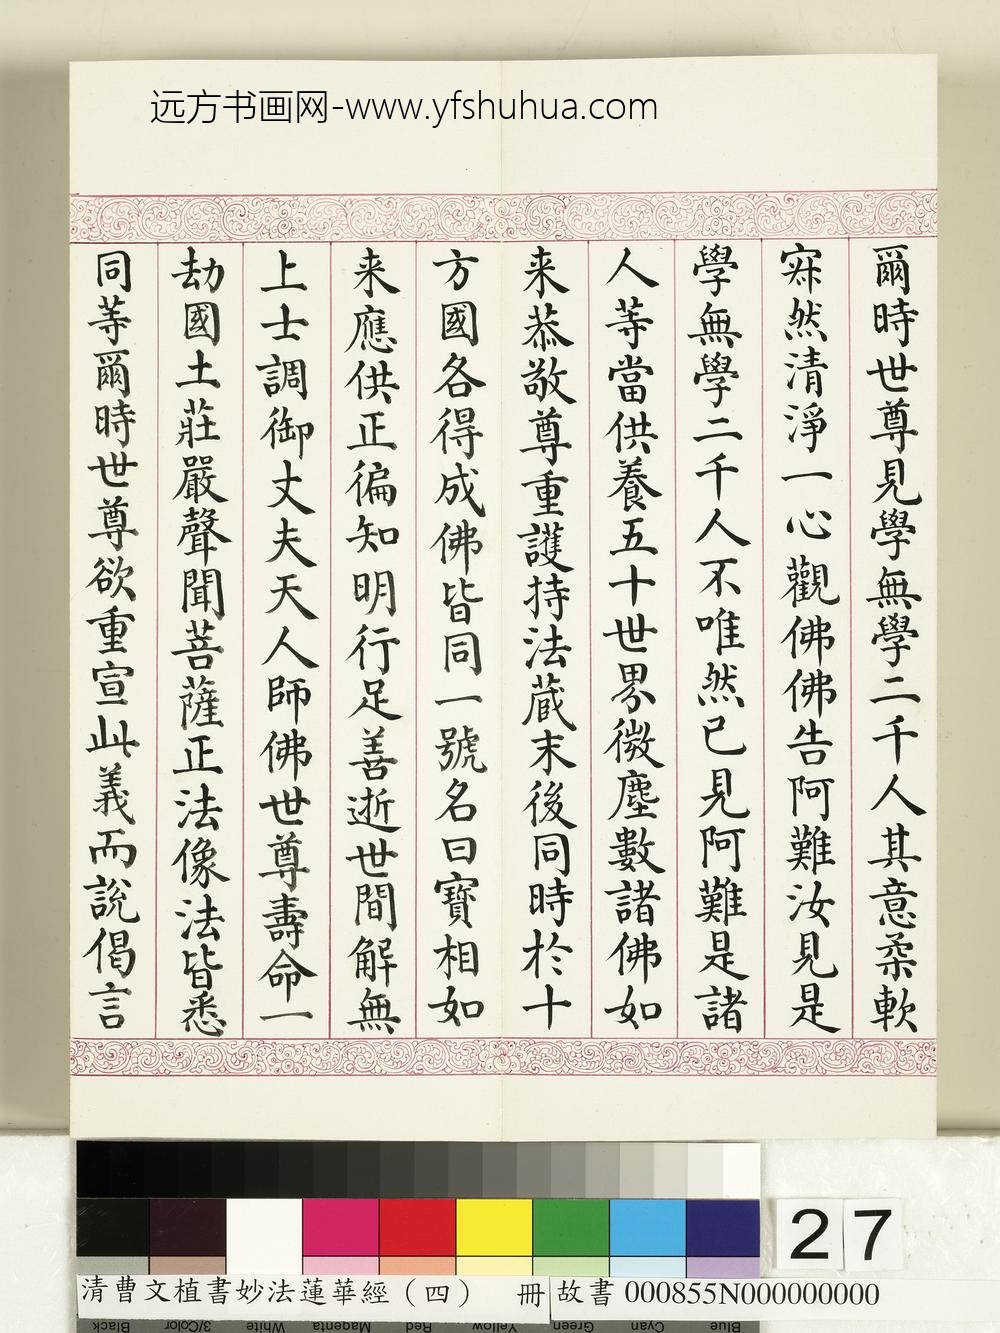 远方书画网-www.yfshuhua.com
爾時世尊見學無學二千人其意柔軟
寂然清淨一心觀佛佛告阿難汝見是
學無學二千人不唯然已見阿難是諸
人等當供養五十世界微塵數諸佛如
来恭敬尊重護持法蔵末後同時於十
方國各得成佛皆同一號名曰寶相如
来應供正徧知明行足善逝世間解無
上士調御丈夫天人師佛世尊壽命一
劫國土莊嚴聲聞菩薩正法像法皆悉
同等爾時世尊欲重宣此義而說偈言
27
清曹文植書妙法蓮華經（四） 冊 故書 000855N000000000
Black 3/Color White Magenta Red Yellow Green Cyan Blue